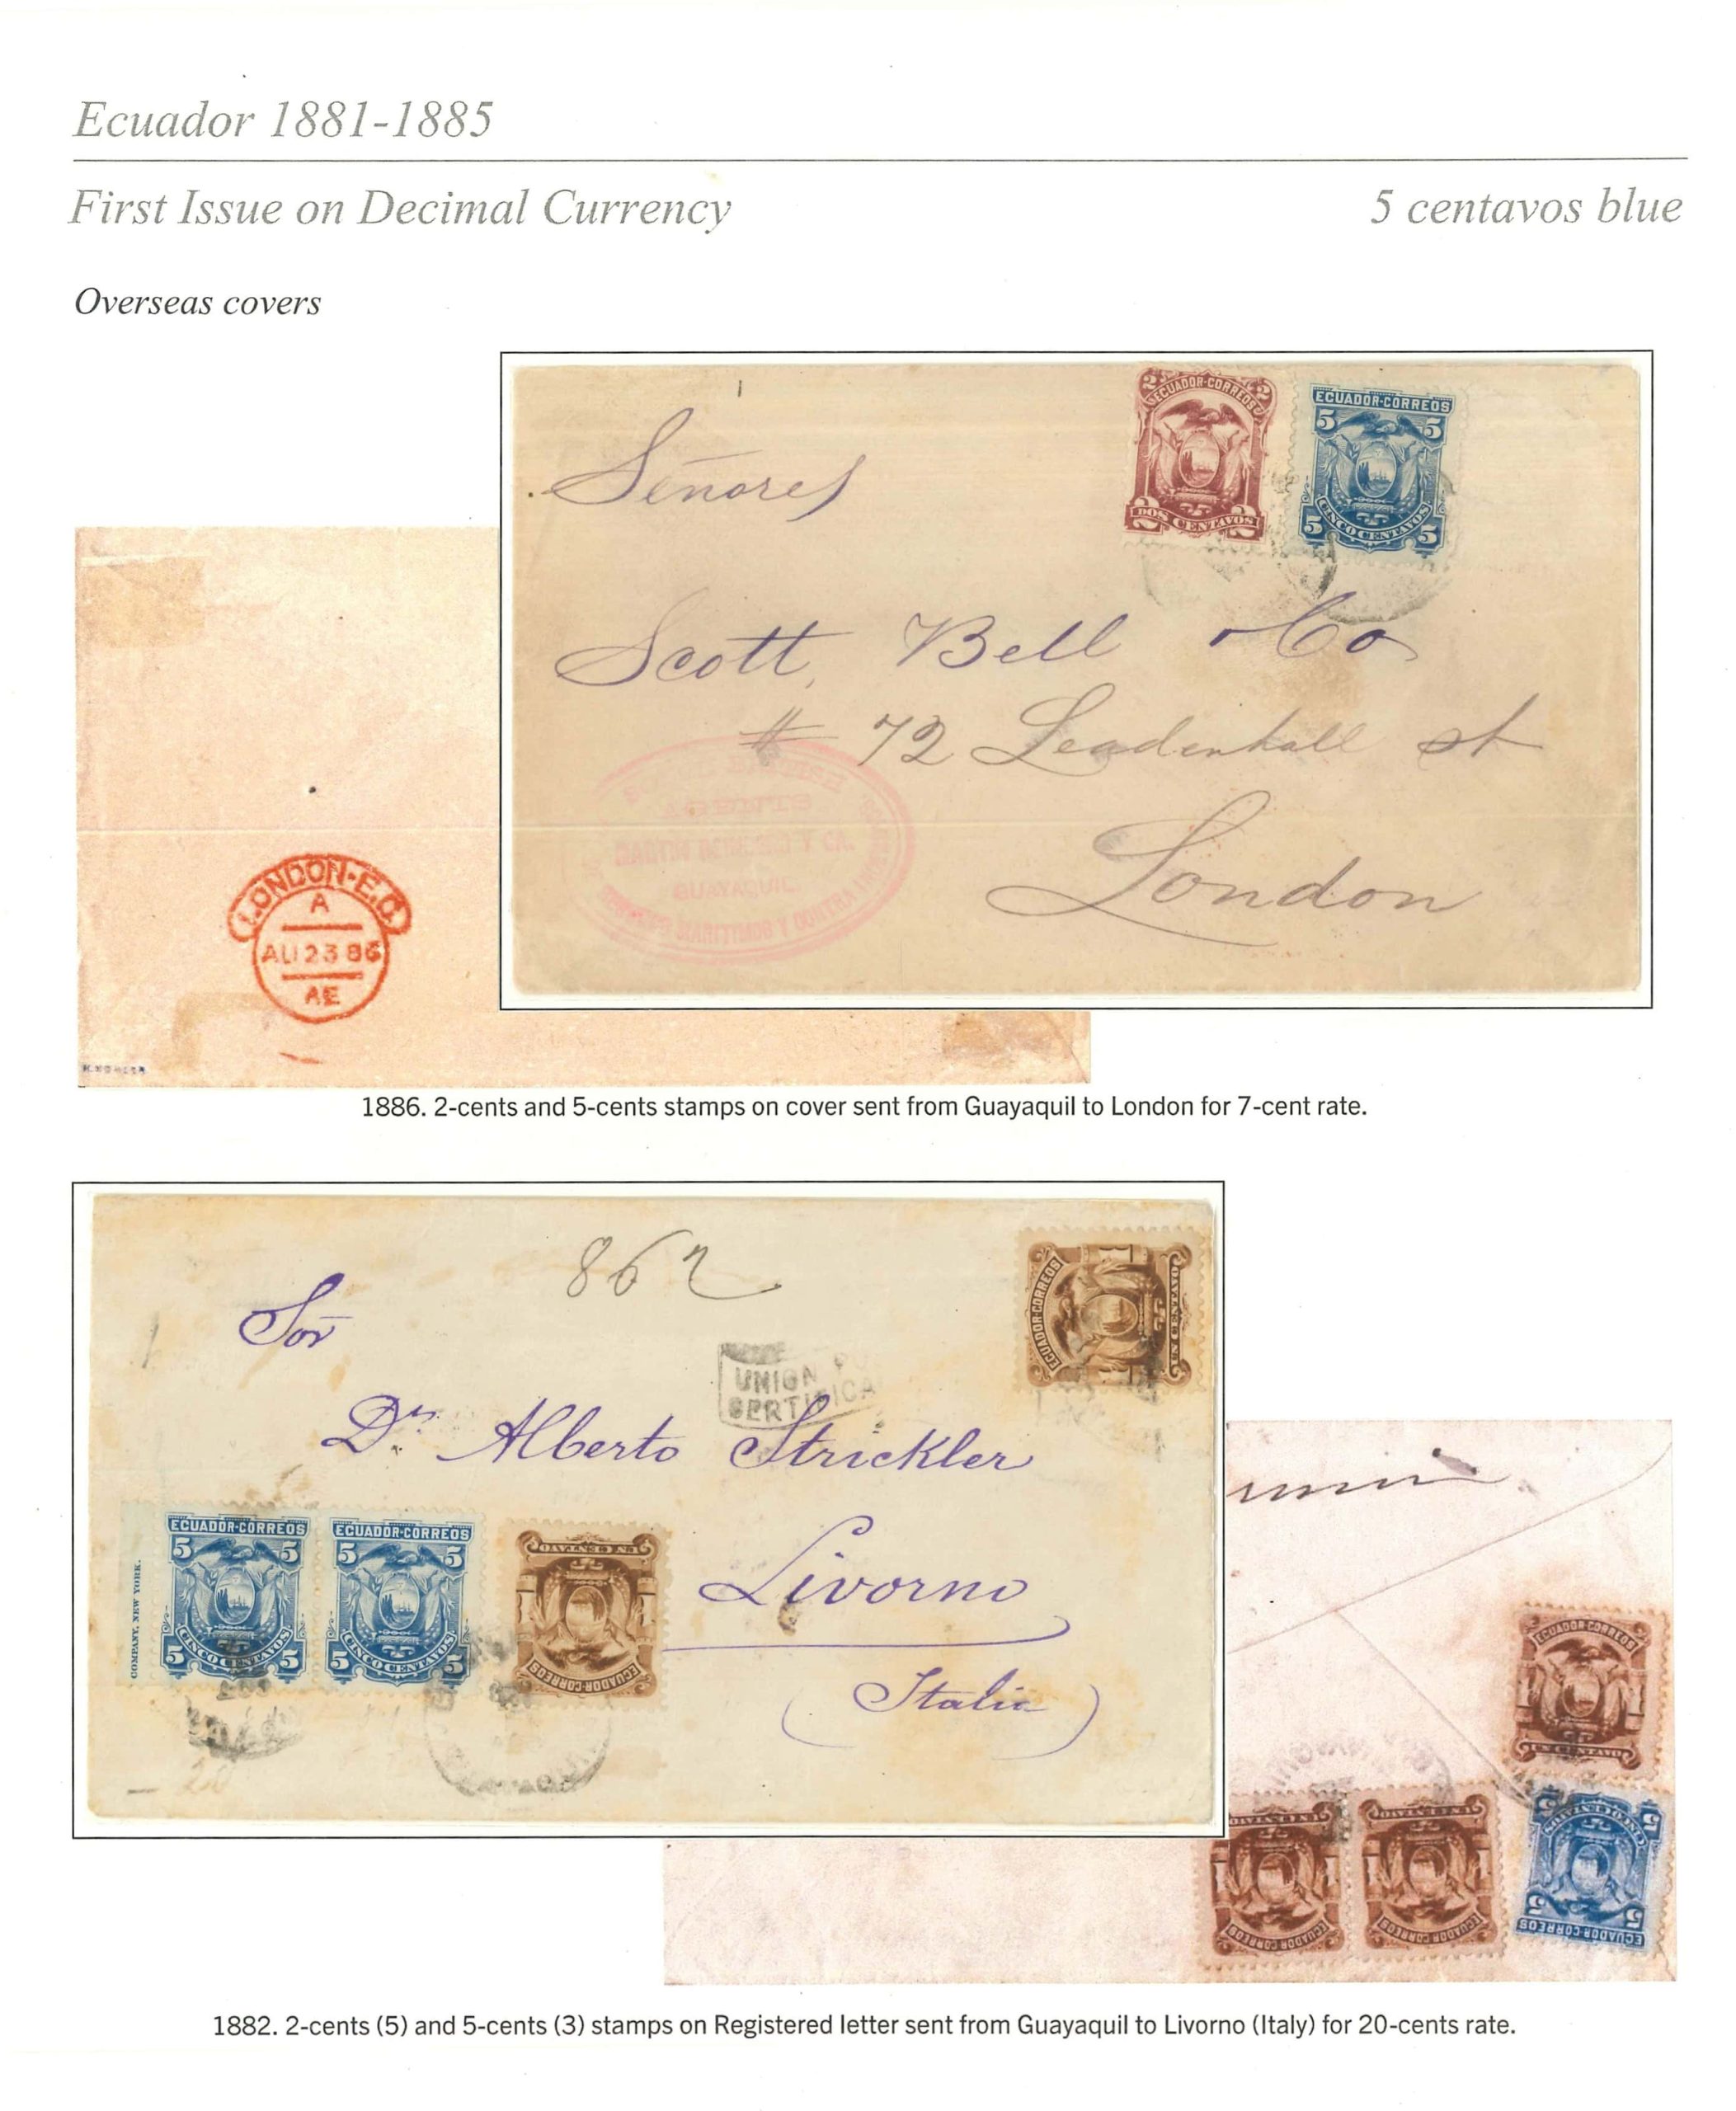 Ecuador 1881-1885
First Issue on Decimal Currency
5 centavos blue
Overseas covers
2 2
ECUADOR-CORREOS
DOS CENTAVOS
2 2
ECUADOR-CORREOS
5 5
CINCO CENTAVOS
5 5
Señores
Scott, Bell Co
# 72 Leadenhall st
London
AGENTS
MARTIN Y CA.
GUAYAQUIL
MARITIMOS Y CONTRA
LONDON-E.C.
A
AU 23 86
AE
1886. 2-cents and 5-cents stamps on cover sent from Guayaquil to London for 7-cent rate.
862
Sor
Dn Alberto Strickler
Livorno
(Italia)
UNION
ECUADOR-CORREOS
UN CENTAVO
COMPANY, NEW YORK.
ECUADOR-CORREOS
5 5
CINCO CENTAVOS
5 5
ECUADOR-CORREOS
5 5
CINCO CENTAVOS
5 5
UN CENTAVO
ECUADOR-CORREOS
20
ECUADOR-CORREOS
UN CENTAVO
UN CENTAVO
ECUADOR-CORREOS
UN CENTAVO
ECUADOR-CORREOS
5 5
CINCO CENTAVOS
5 5
ECUADOR-CORREOS
1882. 2-cents (5) and 5-cents (3) stamps on Registered letter sent from Guayaquil to Livorno (Italy) for 20-cents rate.